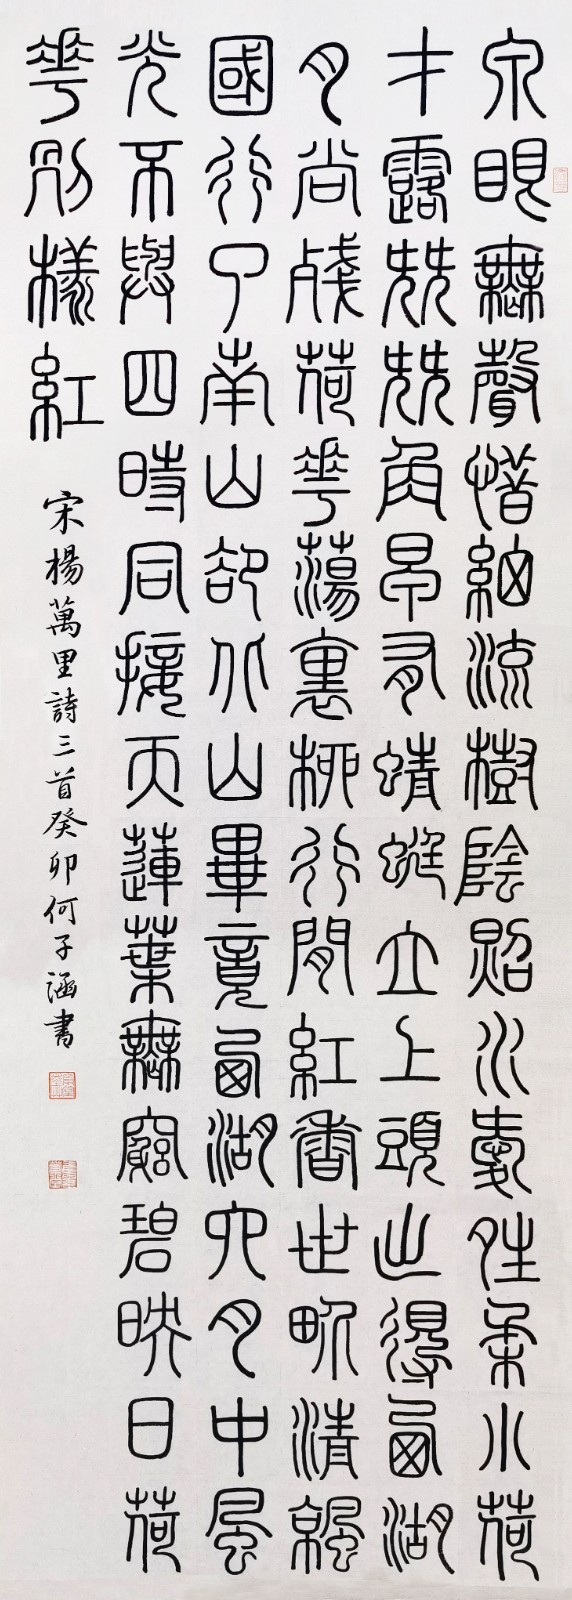 泉眼無聲惜細流樹陰照水愛晴柔小荷
才露尖尖角早有蜻蜓立上頭出得西湖
月尚殘荷華蕩裏柳行間紅香世界清涼
國行了南山卻北山畢竟西湖六月中風
光不與四時同接天蓮葉無窮碧映日荷
華別樣紅
宋楊萬里詩三首癸卯何子涵書